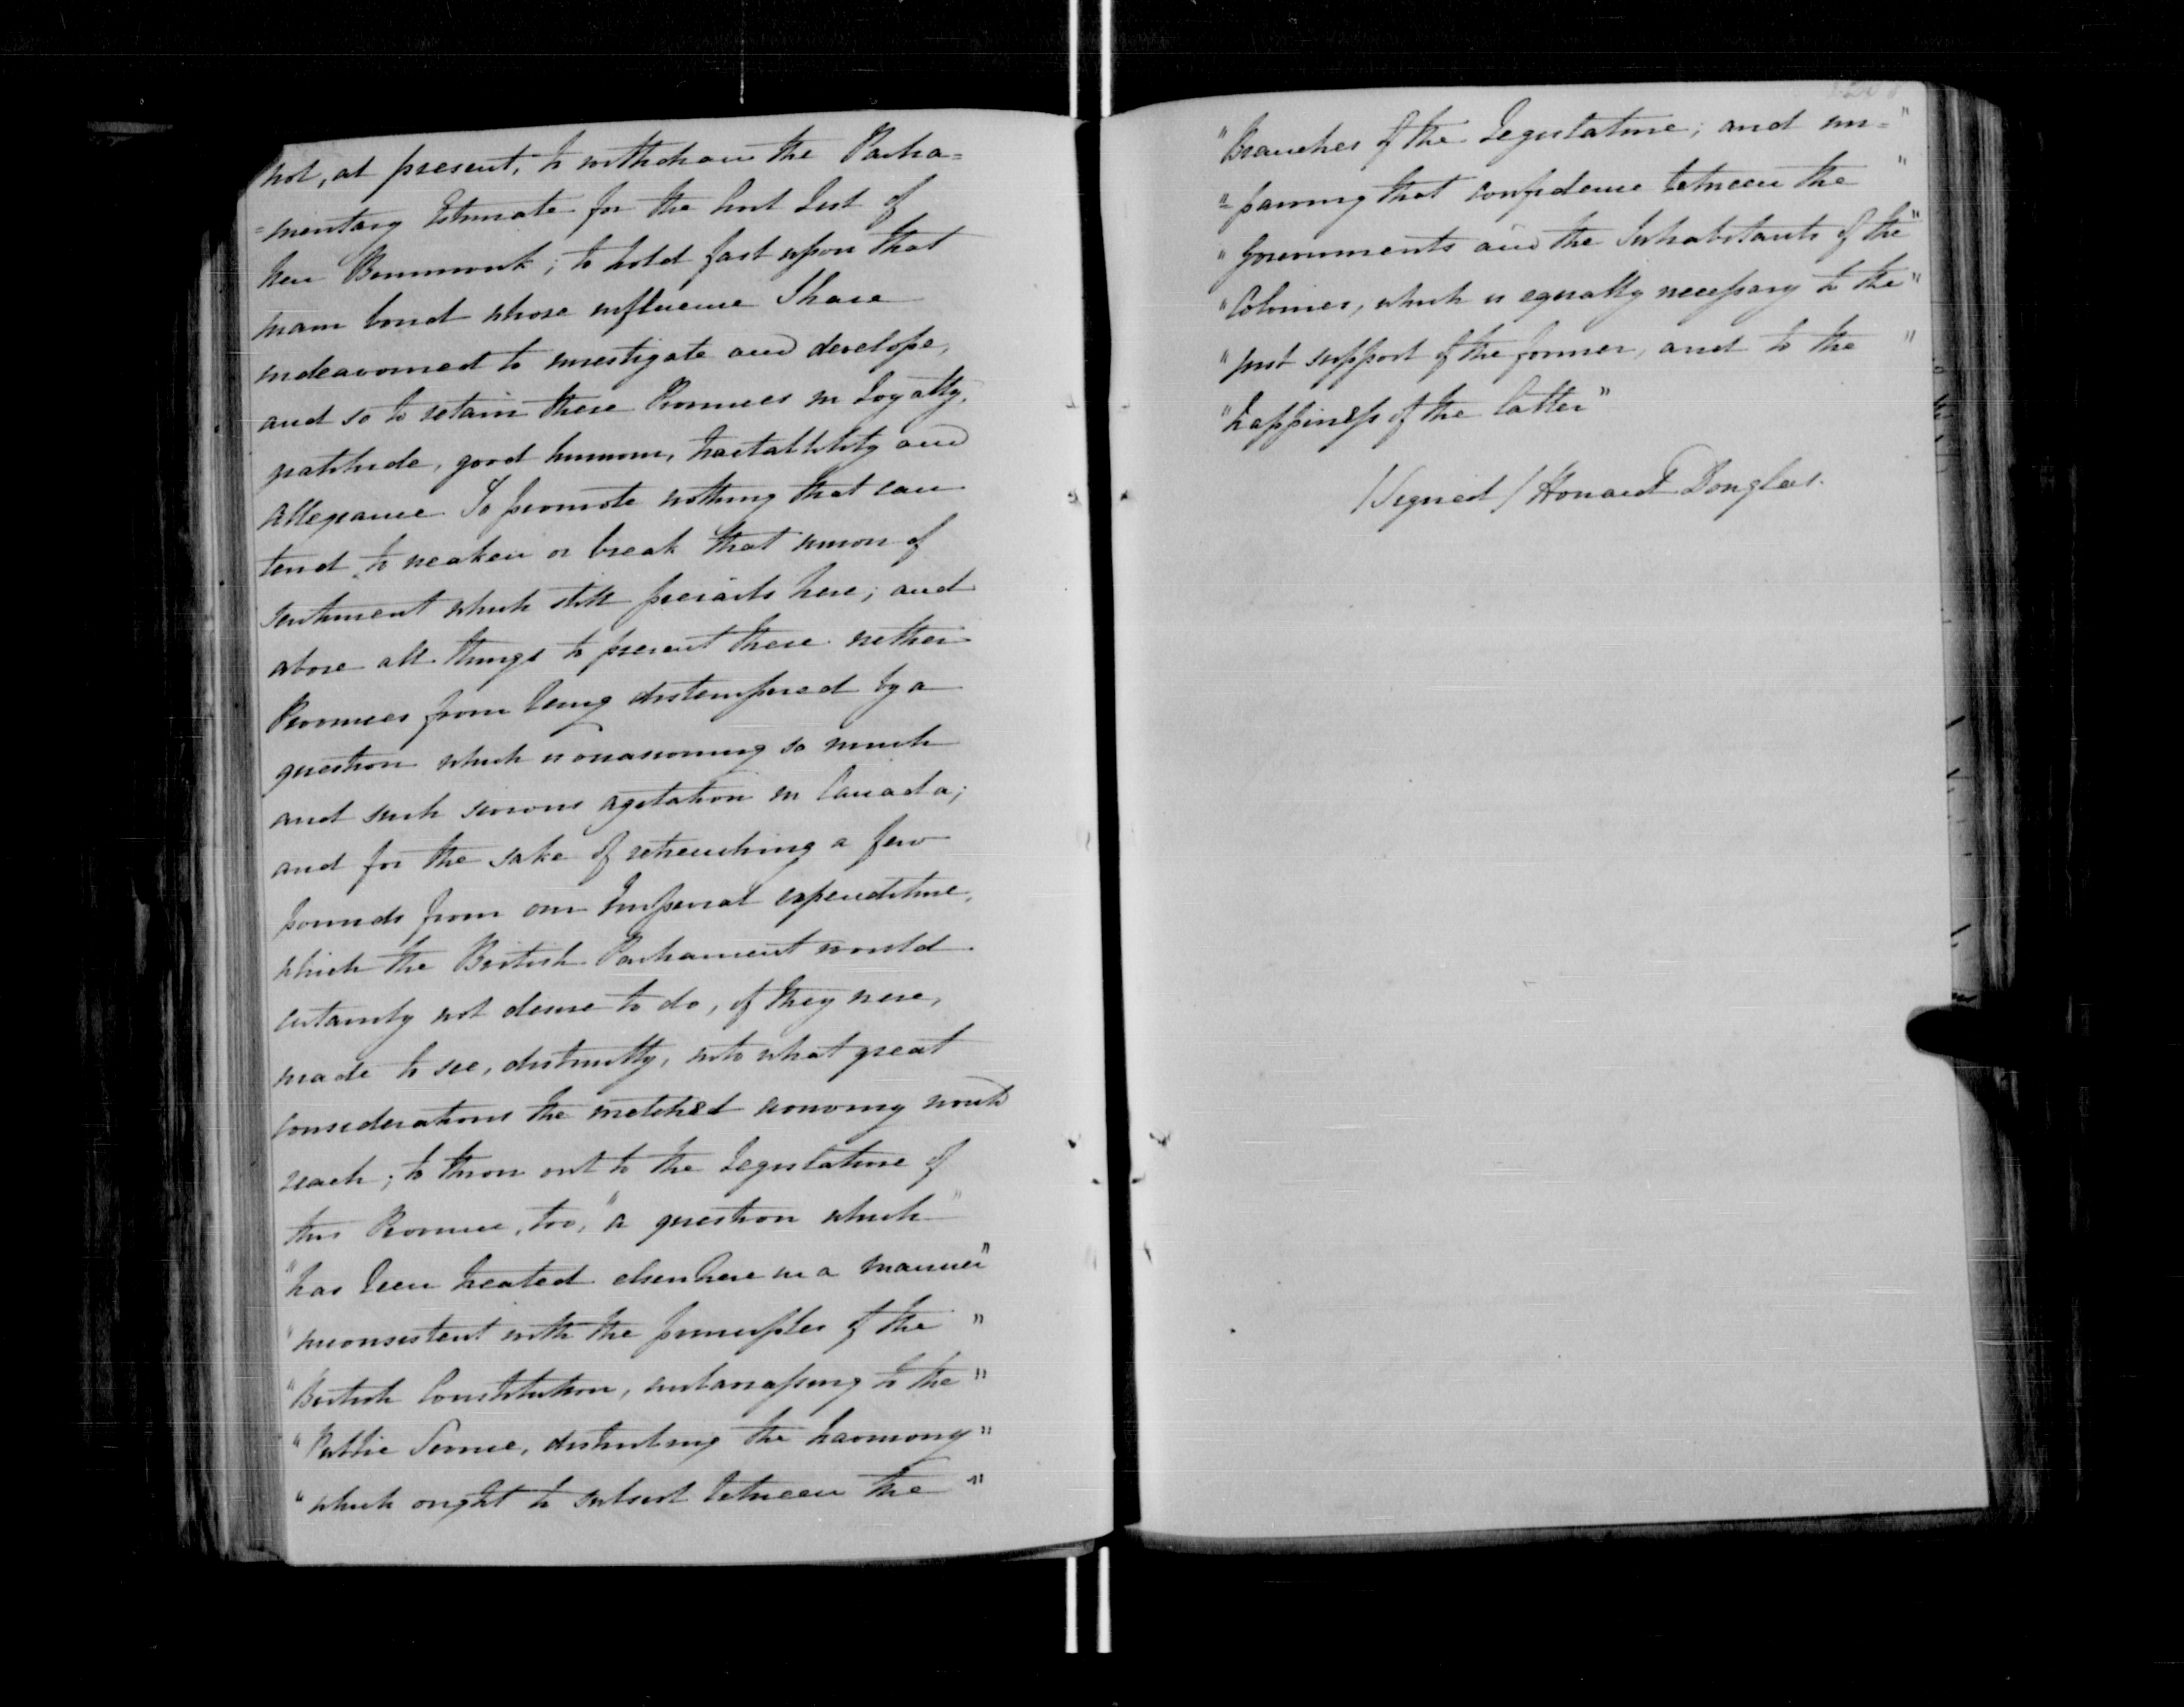 not, at present, to withdraw the Parlia=
=mentary Estimate for the Civil List of
New Brunswick; to hold fast upon that
main bond whose influence I have
endeavoured to investigate and develope,
and so to retain these Provinces in Loyalty,
gratitude, good humour, tractability and
Allegiance To promote nothing that can
tend to weaken or break that union of
sentiment which still prevails here; and
above all things to prevent these nether
Provinces from being distempered by a
question which is occasioning so much
and such serious agitation in Canada;
and for the sake of retrenching a few
pounds from our Imperial expenditure,
which the British Parliament would
certainly not desire to do, if they were,
made to see, distinctly, into what great
considerations the wretched economy would
reach; to throw out to the Legislature of
this Province, too, "a question which"
"has been treated elsewhere in a manner"
"inconsistent with the principles of the"
"British Constitution, embarassing to the"
"Public Service, disturbing the harmony"
"which ought to subsist between the"
"Branches of the Legislature; and im="
"=pairing that confidence between the"
"Governments and the Inhabitants of the"
"Colonies, which is equally necessary to the"
"just support of the former, and to the"
"happiness of the latter"
/Signed/ Howard Douglas.